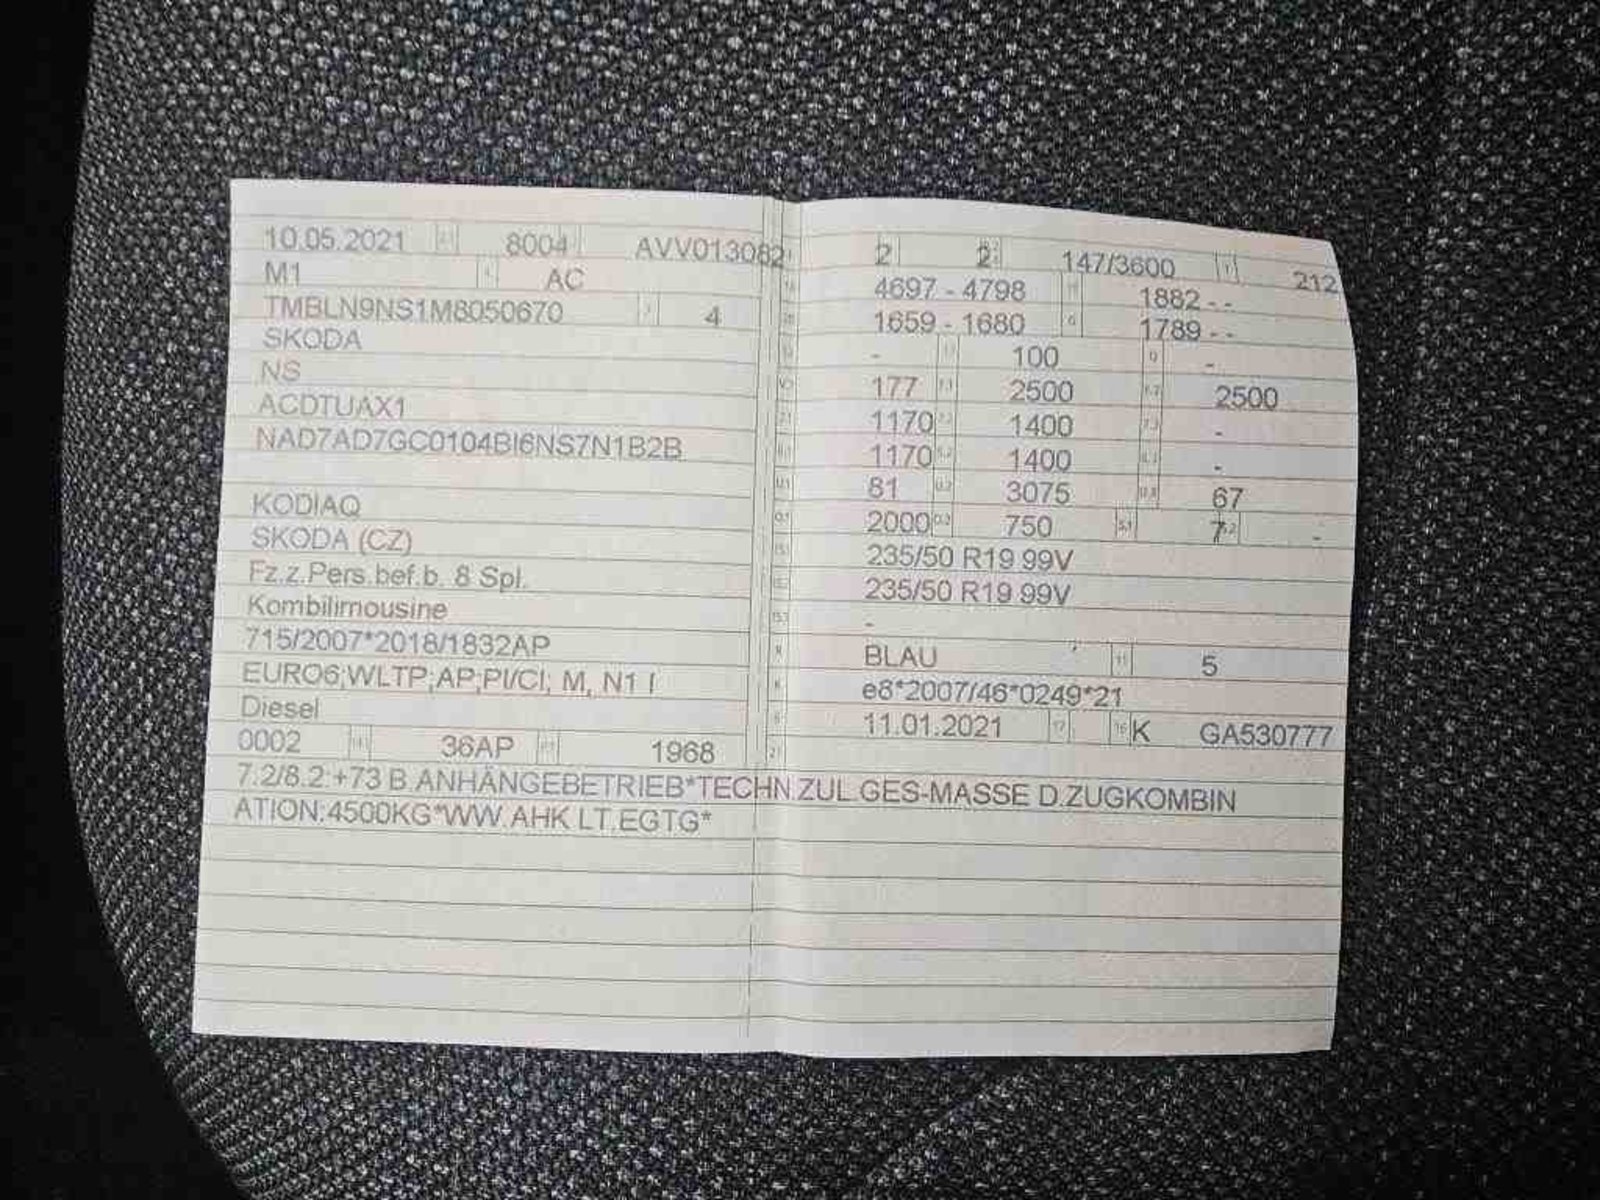 10.05.2021 8004 AVV013082
M1 AC
TMBLN9NS1M8050670 4
SKODA
NS
ACDTUAX1
NAD7AD7GC0104BI6NS7N1B2B
KODIAQ
SKODA (CZ)
Fz.z.Pers.bef.b. 8 Spl.
Kombilimousine
715/2007*2018/1832AP
EURO6;WLTP;AP;PI/CI; M, N1 I
Diesel
0002 36AP 1968
2 2 147/3600 212
4697 - 4798 1882 - -
1659 - 1680 1789 - -
- 100 -
177 2500 2500
1170 1400 -
1170 1400 -
81 3075 67
2000 750 7 -
235/50 R19 99V
235/50 R19 99V
-
BLAU 5
e8*2007/46*0249*21
11.01.2021 K GA530777
7.2/8.2:+73 B.ANHÄNGEBETRIEB*TECHN.ZUL.GES-MASSE D.ZUGKOMBIN
ATION:4500KG*WW.AHK LT.EGTG*